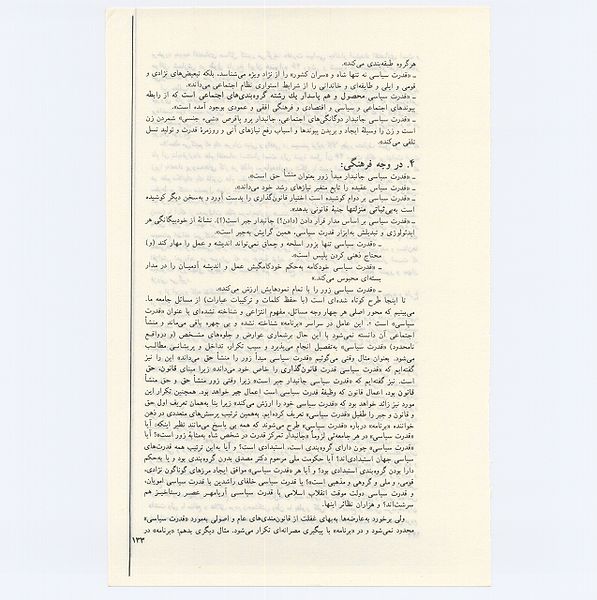 هرگروه طبقه‌بندی می‌کند».
ـ «قدرت سیاسی نه تنها شاه و «سران کشور» را از نژاد ویژه می‌شناسد، بلکه تبعیض‌های نژادی و
قومی و ایلی و طایفه‌ای و خاندانی را از شرایط استواری نظام اجتماعی می‌داند».
ـ «قدرت سیاسی محصول و هم پاسدار یك رشته گروه‌بندی‌های اجتماعی است که از رابطه
پیوندهای اجتماعی و سیاسی و اقتصادی و فرهنگی افقی و عمودی بوجود آمده است».
ـ «قدرت سیاسی جانبدار دوگانگی‌های اجتماعی، جانبدار پرو پاقرص «شیء جنسی» شمردن زن
است و زن را وسیلهٔ ایجاد و بریدن پیوندها و اسباب رفع نیازهای آنی و روزمرهٔ قدرت و تولید نسل
تلقی می‌کند».
۴. در وجه فرهنگی:
ـ «قدرت سیاسی جانبدار مبدأ زور بعنوان منشأ حق است».
ـ «قدرت سیاسی عقیده را تابع متغیر نیازهای رشد خود می‌داند».
ـ «قدرت سیاسی بر دوام کوشیده است اختیار قانون‌گذاری را بدست آورد و به‌سخن دیگر کوشیده
است به‌بی‌ثباتی منزلتها جنبهٔ قانونی بدهد».
ـ «قدرت سیاسی بر اساس مدار قرار دادن (دادن؟) جانبدار جبر است(!). نشانهٔ از خودبیگانگی هر
ایدئولوژی و تبدیلش به‌ابزار قدرت سیاسی، همین گرایش به‌جبر است».
ـ «قدرت سیاسی تنها بزور اسلحه و چماق نمی‌تواند اندیشه و عمل را مهار کند (و)
محتاج ذهنی کردن پلیس است».
ـ «قدرت سیاسی خودکامه به‌حکم خودکامگیش عمل و اندیشه آدمیـان را در مدار
بسته‌ای محبوس می‌کند».
ـ «قدرت سیاسی زور را با تمام نمودهایش ارزش می‌کند».
تا اینجا طرح کوتاه شده‌ای است (با حفظ کلمات و ترکیبات عبارات) از مسائل جامعه ما.
می‌بینیم که محور اصلی هر چهار وجه مسائل، مفهوم انتزاعی و شناخته نشده‌ای با عنوان «قدرت
سیاسی» است. این عامل در سراسر «برنامه» شناخته نشده و بی چهره باقی می‌ماند و منشأ
اجتماعی آن دانسته نمی‌شود با این حال برشماری عوارض و جلوه‌های مشـخص (و درواقـع
نامحدود) «قدرت سیاسی» به‌تفصیل انجام می‌پذیرد و سبب تکرار، تداخل و پریشـانـی مطالـب
می‌شود. بعنوان مثال وقتی می‌گوئیم «قدرت سیاسی مبدأ زور را منشأ حق می‌داند» این را نیز
گفته‌ایم که «قدرت سیاسی قدرت قانون‌گذاری را خاص خود می‌داند» زیرا مبنای قانون، حق
است. نیز گفته‌ایم که «قدرت سیاسی جانبدار جبر است» زیرا وقتی زور منشأ حق و حق منشأ
قانون بود، اعمال قانون که وظیفهٔ قدرت سیاسی است اعمال جبر خواهد بود. همچنین تکرار این
مورد نیز زائد خواهد بود که «قدرت سیاسی خود را ارزش می‌کند» زیرا بنا به‌همان تعریف اول حق
و قانون و جبر را طفیل «قدرت سیاسی» تعریف کرده‌ایم. به‌همین ترتیب پرسش‌های متعددی در ذهن
خواننده «برنامه» درباره «قدرت سیاسی» طرح می‌شوند که همه بی پاسخ می‌مانند نظیر اینکه: آیا
«قدرت سیاسی» در هر جامعه‌ئی لزوماً «جانبدار تمرکز قدرت در شخص شاه به‌مثابهٔ زور است»؟ آیا
«قدرت سیاسی» چون دارای گروه‌بندی است، استبدادی است؟ و آیا به‌این ترتیب همه قدرت‌های
سیاسی جهان استبدادی‌اند؟ آیا حکومت ملی مرحوم دکتر مصدق بدون گروه‌بندی بود و یا به‌حکم
دارا بودن گروه‌بندی استبدادی بود؟ و آیا هر «قدرت سیاسی» موافق ایجاد مرزهای گوناگون نژادی،
قومی، و ملی و گروهی و مذهبی است»؟ یا قدرت سیاسی خلفای راشدین با قدرت سیاسی امویان،
و قدرت سیاسی دولت موقت انقلاب اسلامی با قدرت سیاسـی آریامهـر عصـر رستاخیـز هم
سرشت‌اند؟ و هزاران نظائر اینها.
ولی برخورد به‌عارضه‌ها به‌بهای غفلت از قانون‌مندی‌های عام و اصولی به‌مورد «قدرت سیاسی»
محدود نمی‌شود و در «برنامه» با پیگیری مصرانه‌ای تکرار می‌شود. مثال دیگری بدهم: «برنامه» در
۱۳۳